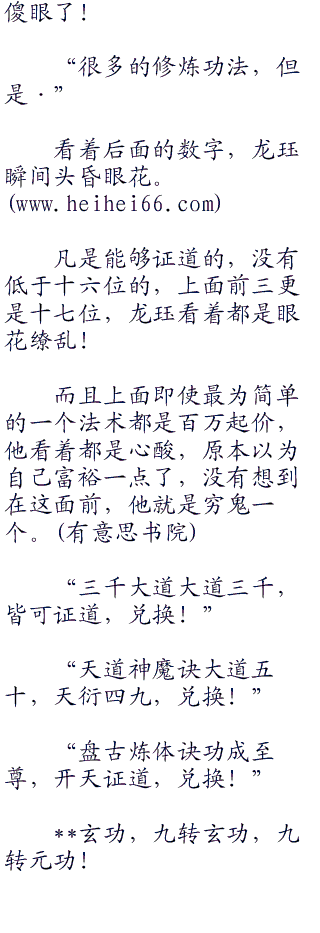 傻眼了！
“很多的修炼功法，但
是·”
看着后面的数字，龙珏
瞬间头昏眼花。
(www.heihei66.com)
凡是能够证道的，没有
低于十六位的，上面前三更
是十七位，龙珏看着都是眼
花缭乱！
而且上面即使最为简单
的一个法术都是百万起价，
他看着都是心酸，原本以为
自己富裕一点了，没有想到
在这面前，他就是穷鬼一
个。(有意思书院)
“三千大道大道三千，
皆可证道，兑换！”
“天道神魔诀大道五
十，天衍四九，兑换！”
“盘古炼体诀功成至
尊，开天证道，兑换！”
**玄功，九转玄功，九
转元功！